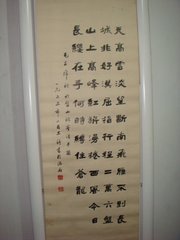 天高雲淡望断南飛雁不到長
城非好漢屈指行程二萬六盤
山上高峰紅旗漫捲西風今日
長纓在手何時縛住蒼龍